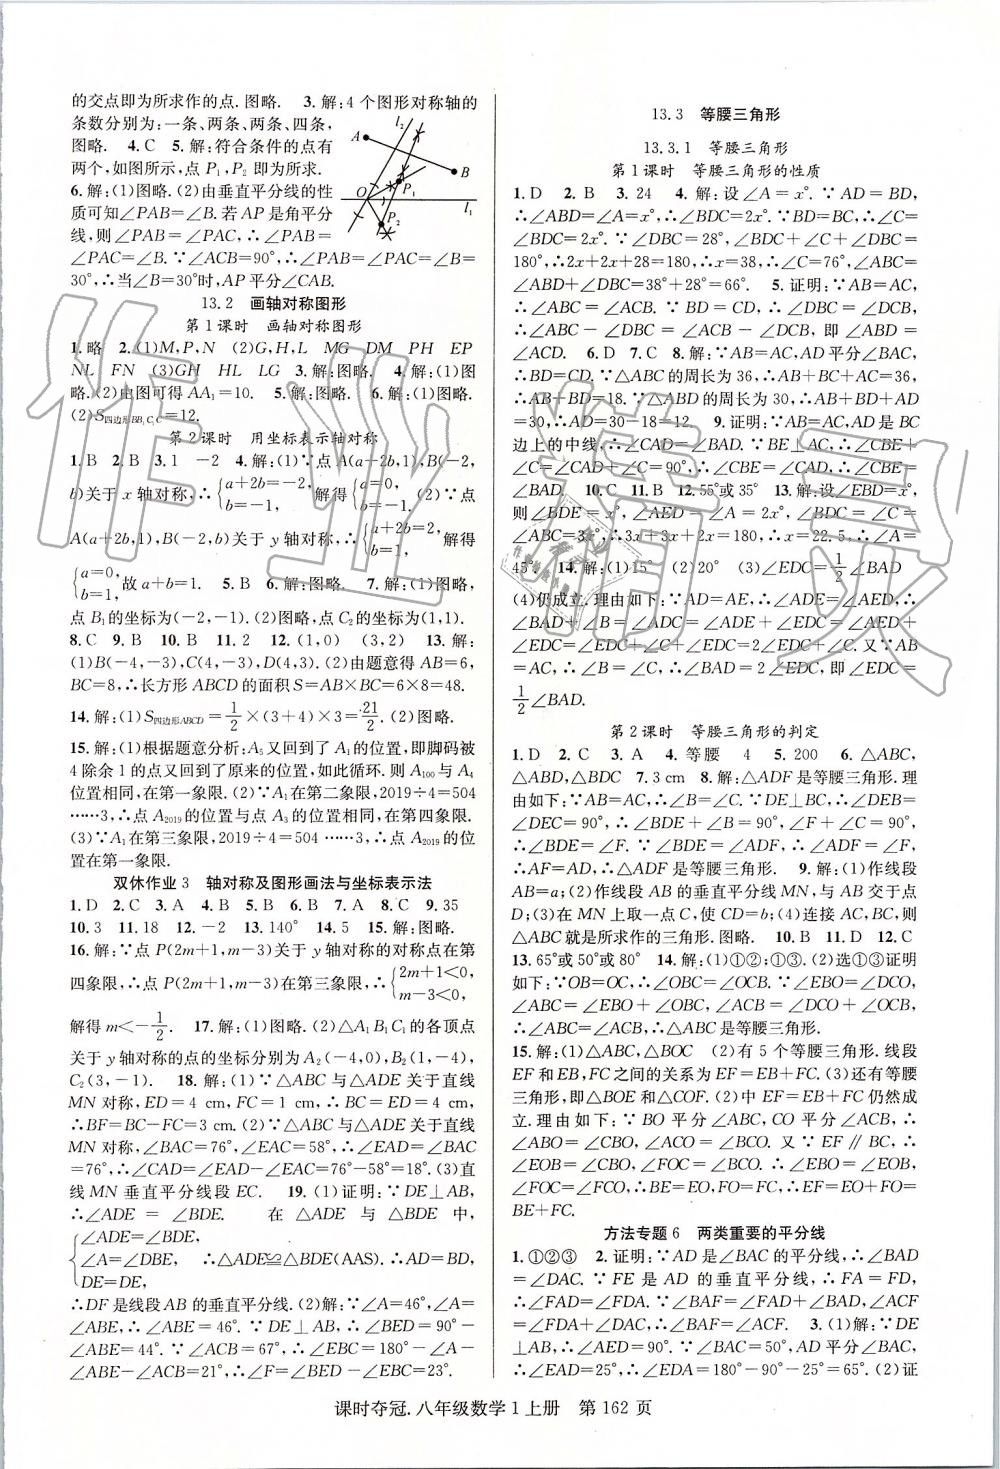 的交点即为所求作的点.图略. 3.解:4个图形对称轴的
条数分别为:一条、两条、两条、四条,
图略. 4.C 5.解:符合条件的点有
两个,如图所示,点P₁,P₂即为所求.
6.解:(1)图略.(2)由垂直平分线的性
质可知∠PAB=∠B.若AP是角平分
线,则∠PAB=∠PAC,∴∠PAB=
∠PAC=∠B.∵∠ACB=90°,∴∠PAB=∠PAC=∠B=
30°,∴当∠B=30°时,AP平分∠CAB.
A
B
O
P₁
P₂
l₁
l₂
13.2 画轴对称图形
第1课时 画轴对称图形
1.略 2.(1)M,P,N (2)G,H,L MG DM PH EP
NL FN (3)GH HL LG 3.解:图略. 4.解:(1)图
略.(2)由图可得AA₁=10. 5.解:图略. 6.解:(1)图略.
(2)S四边形BB₁C₁C=12.
第2课时 用坐标表示轴对称
1.B 2.B 3.1 -2 4.解:(1)∵点A(a+2b,1),B(-2,
b)关于x轴对称,∴{a+2b=-2, b=-1, 解得{a=0, b=-1. (2)∵点
A(a+2b,1),B(-2,b)关于y轴对称,∴{a+2b=2, b=1, 解得
{a=0, b=1, 故a+b=1. 5.B 6.解:图略. 7.解:(1)图略,
点B₁的坐标为(-2,-1).(2)图略,点C₂的坐标为(1,1).
8.C 9.B 10.B 11.2 12.(1,0) (3,2) 13.解:
(1)B(-4,-3),C(4,-3),D(4,3).(2)由题意得AB=6,
BC=8,∴长方形ABCD的面积S=AB×BC=6×8=48.
14.解:(1)S四边形ABCD=1/2×(3+4)×3=21/2.(2)图略.
15.解:(1)根据题意分析:A₅又回到了A₁的位置,即脚码被
4除余1的点又回到了原来的位置,如此循环.则A₁₀₀与A₄
位置相同,在第一象限.(2)∵A₁在第二象限,2019÷4=504
……3,∴点A₂₀₁₉的位置与点A₃的位置相同,在第四象限.
(3)∵A₁在第三象限,2019÷4=504……3,∴点A₂₀₁₉的位
置在第一象限.
双休作业3 轴对称及图形画法与坐标表示法
1.D 2.C 3.A 4.B 5.B 6.B 7.A 8.C 9.35
10.3 11.18 12.-2 13.140° 14.5 15.解:图略.
16.解:∵点P(2m+1,m-3)关于y轴对称的对称点在第
四象限,∴点P(2m+1,m-3)在第三象限,∴{2m+1<0, m-3<0,
解得m<-1/2. 17.解:(1)图略.(2)△A₁B₁C₁的各顶点
关于y轴对称的点的坐标分别为A₂(-4,0),B₂(1,-4),
C₂(3,-1). 18.解:(1)∵△ABC与△ADE关于直线
MN对称,ED=4 cm,FC=1 cm,∴BC=ED=4 cm,
∴BF=BC-FC=3 cm.(2)∵△ABC与△ADE关于直线
MN对称,∠BAC=76°,∠EAC=58°,∴∠EAD=∠BAC
=76°,∴∠CAD=∠EAD-∠EAC=76°-58°=18°.(3)直
线MN垂直平分线段EC. 19.(1)证明:∵DE⊥AB,
∴∠ADE=∠BDE. 在△ADE与△BDE中,
{∠ADE=∠BDE,
∠A=∠DBE, ∴△ADE≌△BDE(AAS).∴AD=BD,
DE=DE,
∴DF是线段AB的垂直平分线.(2)解:∵∠A=46°,∠A=
∠ABE,∴∠ABE=46°.∵DE⊥AB,∴∠BED=90°-
∠ABE=44°.∵∠ACB=67°,∴∠EBC=180°-∠A-
∠ABE-∠ACB=21°,∴∠F=∠BED-∠EBC=23°.
13.3 等腰三角形
13.3.1 等腰三角形
第1课时 等腰三角形的性质
1.D 2.B 3.24 4.解:设∠A=x°.∵AD=BD,
∴∠ABD=∠A=x°,∴∠BDC=2x°.∵BD=BC,∴∠C=
∠BDC=2x°.∵∠DBC=28°,∠BDC+∠C+∠DBC=
180°,∴2x+2x+28=180,∴x=38,∴∠C=76°,∠ABC=
∠ABD+∠DBC=38°+28°=66°. 5.证明:∵AB=AC,
∴∠ABC=∠ACB.∵BD=CD,∴∠DBC=∠DCB,
∴∠ABC-∠DBC=∠ACB-∠DCB,即∠ABD=
∠ACD. 6.D 7.C 8.解:∵AB=AC,AD平分∠BAC,
∴BD=CD.∵△ABC的周长为36,∴AB+BC+AC=36,
∴AB+BD=18.∵△ABD的周长为30,∴AB+BD+AD
=30,∴AD=30-18=12. 9.证明:∵AB=AC,AD是BC
边上的中线,∴∠CAD=∠BAD.∵BE⊥AC,∴∠CBE+
∠C=∠CAD+∠C=90°,∴∠CBE=∠CAD,∴∠CBE=
∠BAD. 10.C 11.B 12.55°或35° 13.解:设∠EBD=x°,
则∠BDE=x°,∠AED=∠A=2x°,∴∠BDC=∠C=
∠ABC=3x°,∴3x+3x+2x=180,∴x=22.5,∴∠A=
45°. 14.解:(1)15° (2)20° (3)∠EDC=1/2∠BAD
(4)仍成立.理由如下:∵AD=AE,∴∠ADE=∠AED,∴
∠BAD+∠B=∠ADC=∠ADE+∠EDC=∠AED+
∠EDC=∠EDC+∠C+∠EDC=2∠EDC+∠C.又∵AB
=AC,∴∠B=∠C,∴∠BAD=2∠EDC,即∠EDC=
1/2∠BAD.
第2课时 等腰三角形的判定
1.D 2.C 3.A 4.等腰 4 5.200 6.△ABC,
△ABD,△BDC 7.3 cm 8.解:△ADF是等腰三角形.理
由如下:∵AB=AC,∴∠B=∠C.∵DE⊥BC,∴∠DEB=
∠DEC=90°,∴∠BDE+∠B=90°,∠F+∠C=90°,
∴∠BDE=∠F.∵∠BDE=∠ADF,∴∠ADF=∠F,
∴AF=AD,∴△ADF是等腰三角形. 9.解:(1)作线段
AB=a;(2)作线段AB的垂直平分线MN,与AB交于点
D;(3)在MN上取一点C,使CD=b;(4)连接AC,BC,则
△ABC就是所求作的三角形.图略. 10.B 11.D 12.C
13.65°或50°或80° 14.解:(1)①②;①③.(2)选①③证明
如下:∵OB=OC,∴∠OBC=∠OCB.∵∠EBO=∠DCO,
∠ABC=∠EBO+∠OBC,∠ACB=∠DCO+∠OCB,
∴∠ABC=∠ACB,∴△ABC是等腰三角形.
15.解:(1)△ABC,△BOC (2)有5个等腰三角形.线段
EF和EB,FC之间的关系为EF=EB+FC.(3)还有等腰
三角形,即△BOE和△COF.(2)中EF=EB+FC仍然成
立.理由如下:∵BO平分∠ABC,CO平分∠ACB,∴
∠ABO=∠CBO,∠ACO=∠BCO.又∵EF∥BC,∴
∠EOB=∠CBO,∠FOC=∠BCO,∴∠EBO=∠EOB,
∠FOC=∠FCO,∴BE=EO,FO=FC,∴EF=EO+FO=
EB+FC.
方法专题6 两类重要的平分线
1.①②③ 2.证明:∵AD是∠BAC的平分线,∴∠BAD
=∠DAC.∵FE是AD的垂直平分线,∴FA=FD,
∴∠FAD=∠FDA.∵∠BAF=∠FAD+∠BAD,∠ACF
=∠FDA+∠DAC,∴∠BAF=∠ACF. 3.(1)解:∵DE
⊥AB,∴∠AED=90°.∵∠ABC=50°,AD平分∠BAC,
∴∠EAD=25°,∴∠EDA=180°-90°-25°=65°.(2)证
课时夺冠.八年级数学1上册 第162页
作业精灵